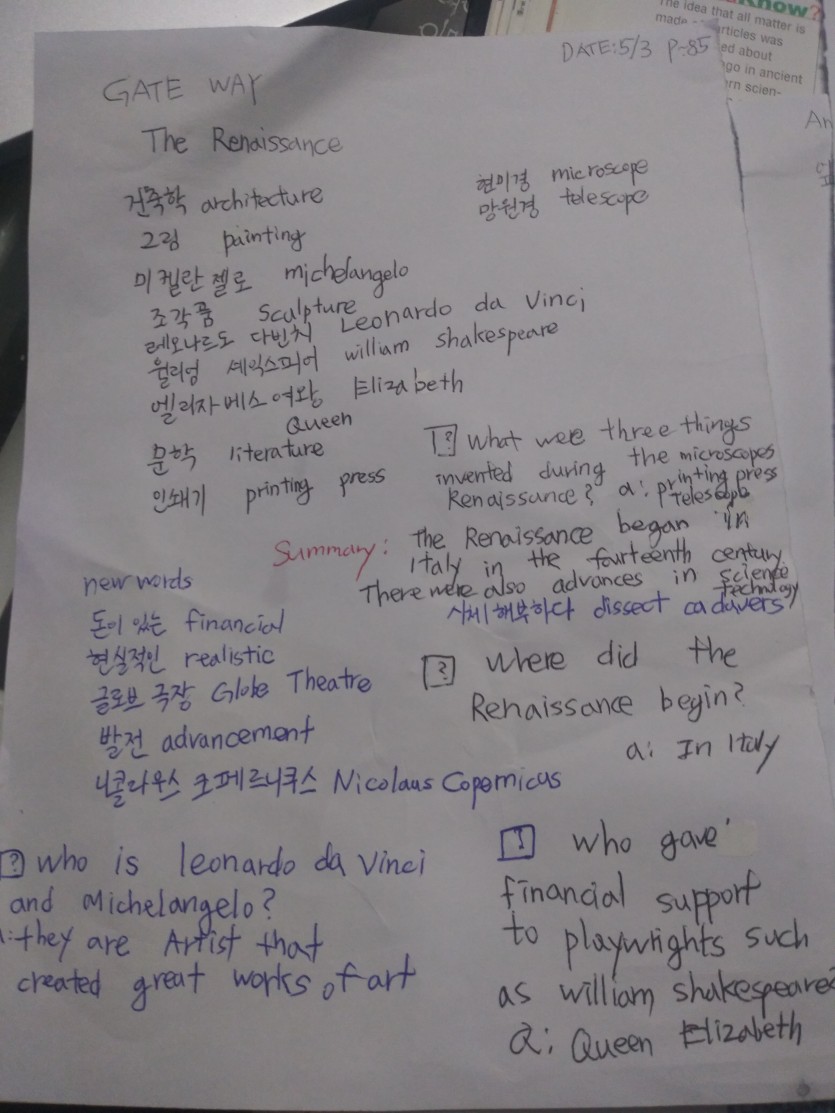 know?
The idea that all matter is
made articles was
ed about
go in ancient
rn scien-
DATE: 5/3 P-85
GATE WAY
The Renaissance
건축학 architecture
현미경 microscope
망원경 telescope
그림 painting
미켈란젤로 michelangelo
조각품 sculpture
레오나르도 다빈치 Leonardo da Vinci
윌리엄 셰익스피어 william shakespeare
엘리자베스 여왕 Elizabeth
Queen
문학 literature
인쇄기 printing press
? What were three things
invented during the microscopes
Renaissance? a: printing press
telescope
Summary: the Renaissance began in
Italy in the fourteenth century
There were also advances in science
technology
시체 해부하다 dissect cadavers
new words
돈이 있는 financial
현실적인 realistic
글로브 극장 Globe Theatre
발전 advancement
니콜라우스 코페르니쿠스 Nicolaus Copernicus
? where did the
Renaissance begin?
a: In Italy
? who is leonardo da Vinci
and Michelangelo?
a: they are Artist that
created great works of art
? who gave
financial support
to playwrights such
as william shakespeare?
a: Queen Elizabeth